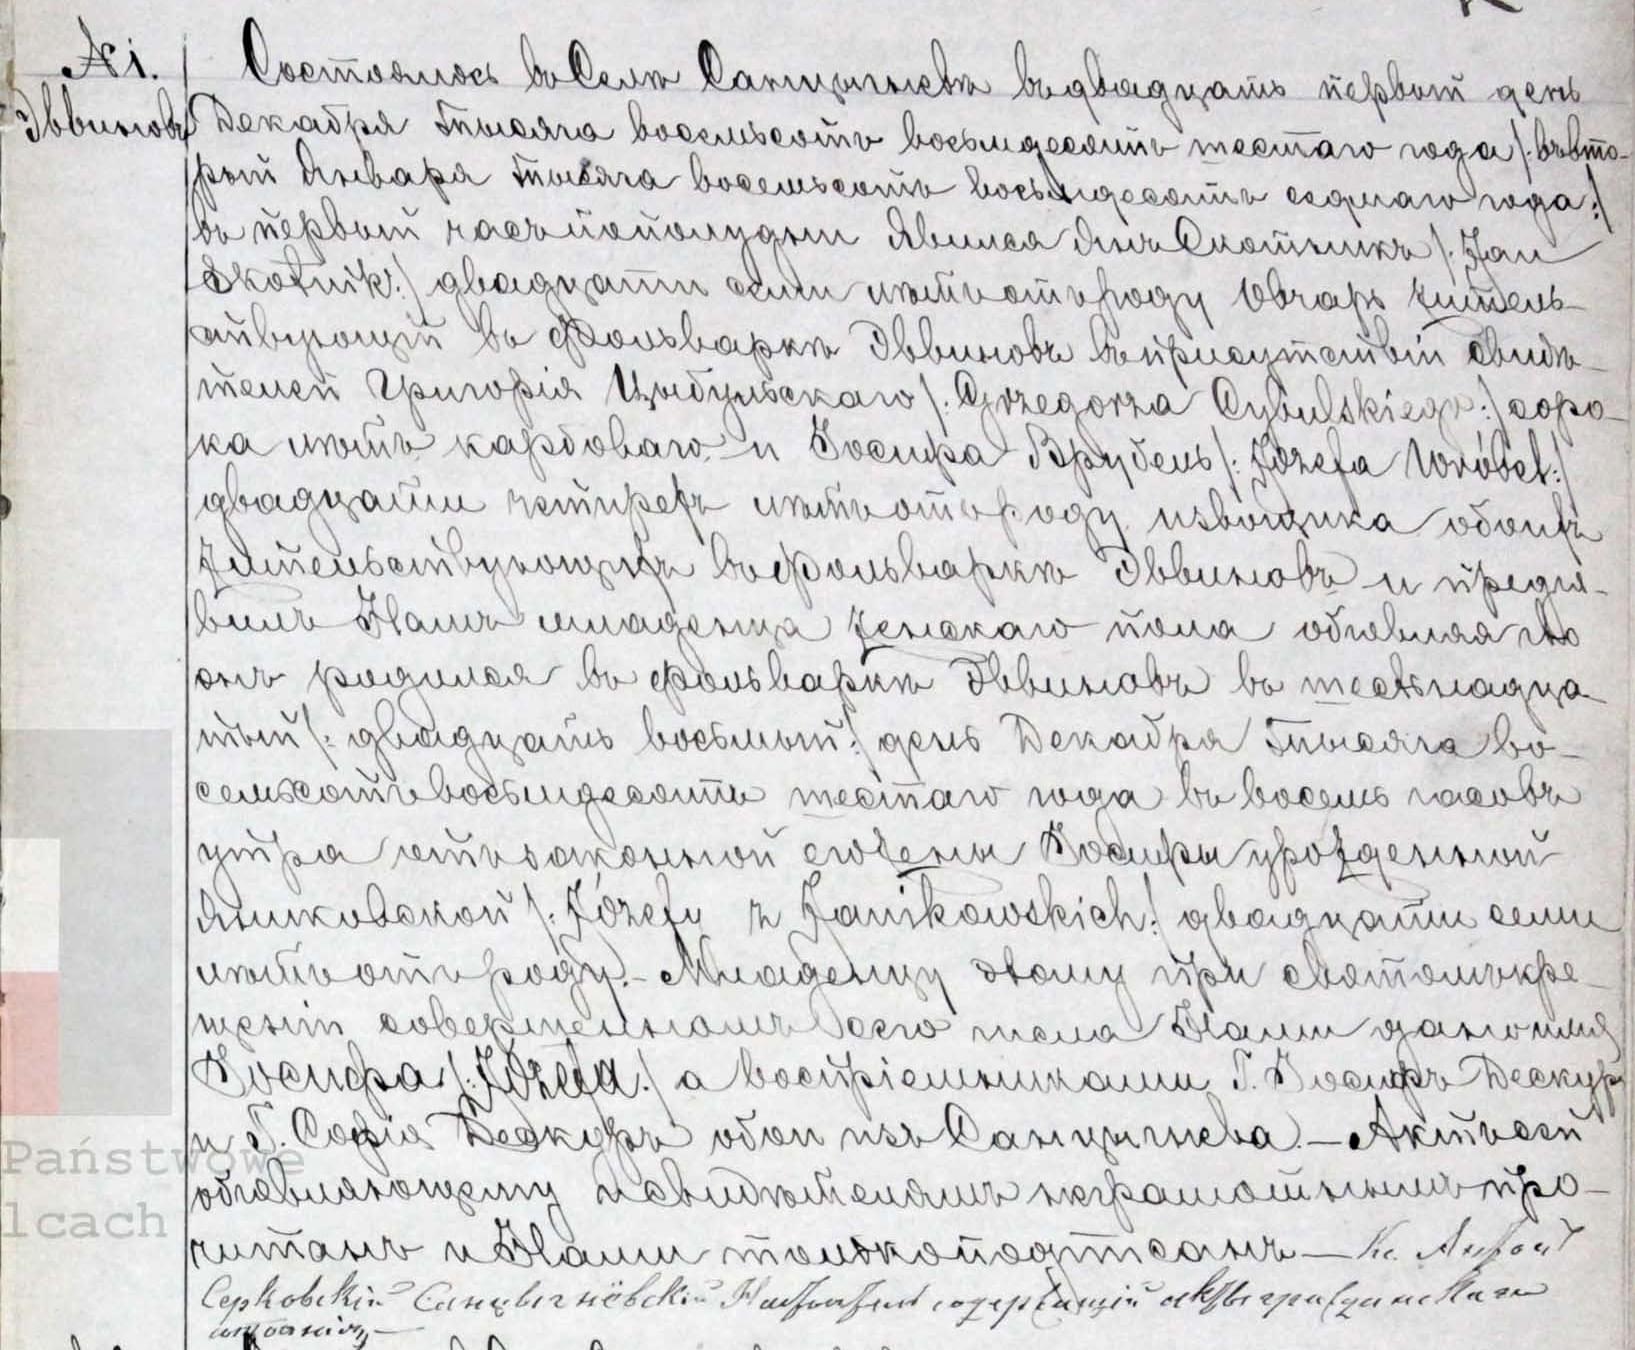 № 1.
Эввиновъ
Состоялось въ Селѣ Санцыгневѣ въ двадцать первый день
Декабря тысяча восемьсотъ восьмдесятъ шестаго года /: въ вто-
рый Января тысяча восемьсотъ восьмдесятъ седмаго года :/
въ первый часъ пополудни Явился Янъ Скотникъ /: Jan
Skotnik :/ двадцати семи лѣтъ отъ роду Овчаръ житель-
ствующій въ Фольваркѣ Эввиновъ въ присутствіи свидѣ-
телей Григорія Цыбульскаго /: Grzegorza Cybulskiego :/ соро-
ка лѣтъ карбоваго и Іосифа Врубель /: Józefa Wróbel :/
двадцати четырехъ лѣтъ отъ роду извощика обоихъ
жительствующихъ въ фольваркѣ Эввиновъ и предъя-
вилъ Намъ младенца женскаго пола объявляя что
онъ родился въ фольваркѣ Эввиновъ въ шестьнадца-
тый /: двадцать восьмый :/ день Декабря тысяча во-
семьсотъ восьмдесятъ шестаго года въ восемь часовъ
утра отъ законной его жены Іосифы урожденной
Яниковской /: Józefy z Janikowskich :/ двадцати семи
лѣтъ отъ роду. – Младенцу этому при святомъ кре-
щеніи совершенномъ сего числа Нами дано имя
Іосифа /: Józefa :/ а воспріемниками Г. Іосифъ Дескуръ
и Г. Софія Дескуръ обои изъ Санцыгнева. – Актъ сей
объявляющему и свидѣтелямъ неграмотнымъ про-
читанъ и Нами только подписанъ – Кс. Антоні
Серковскій Санцыгнёвскій Настоятель содержащій акты гражданскаго
состоянія –
Państwowe
lcach